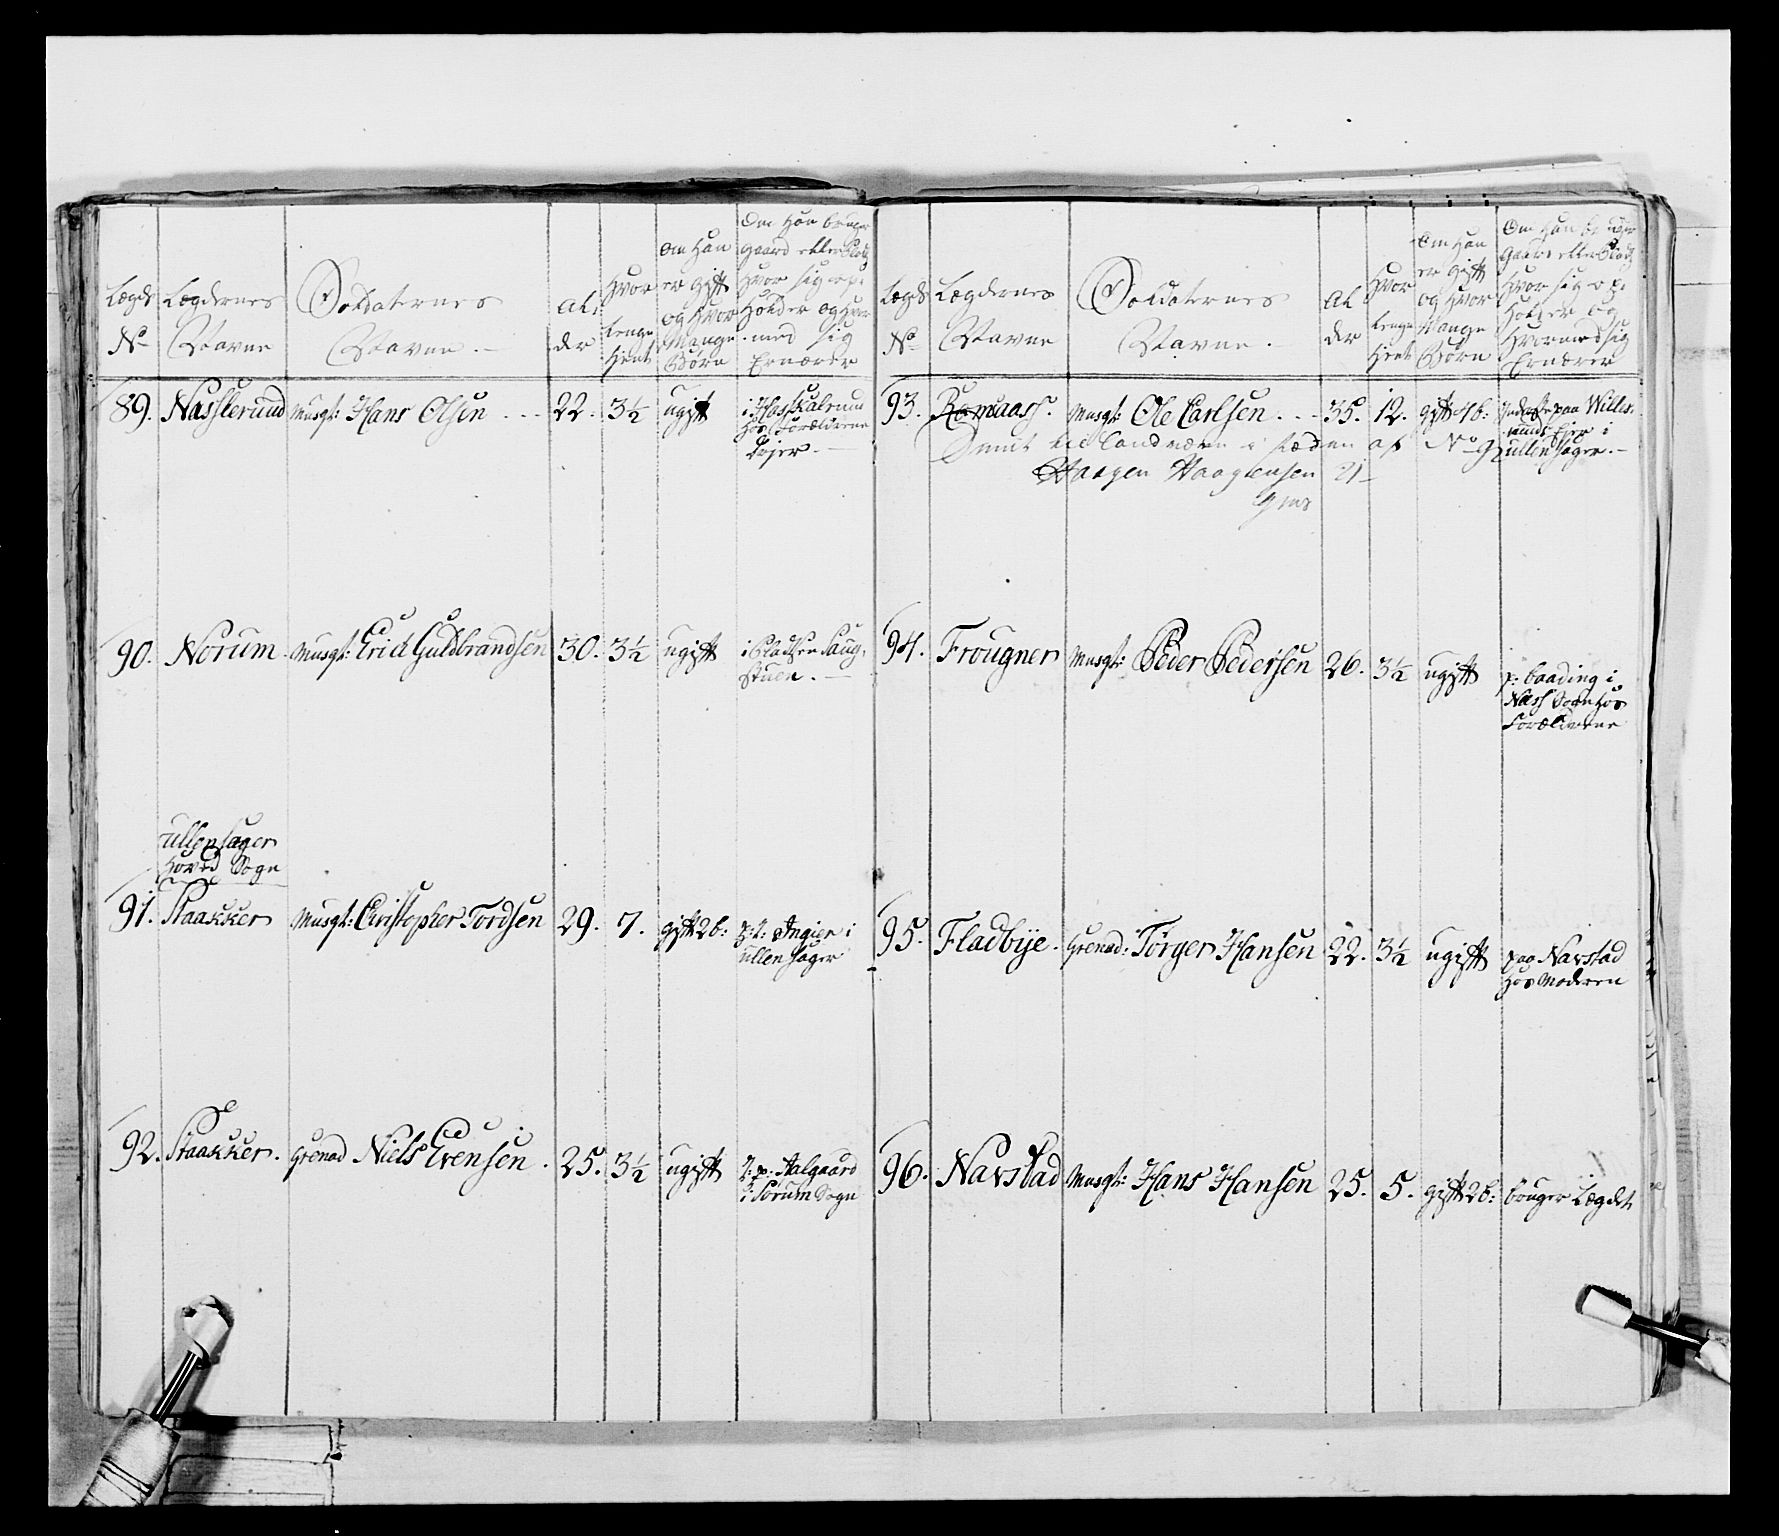 Lægds
No
Lægdernes
Navne
Soldaternes
Navne.
Al,
der
Hvor
lenge
tient
Om Han
er gift
og Hvor
Mange
Børn
Om Han bruger
gaard eller Plads
Hvor sig op:
Holder og Hvor
med sig
Ernærer
89. Nasskerud Musqt: Hans Olsen 22. 3½ ugift
hos Forældrene
90. Norum. Musqt: Erich Guldbrandsen 30. 3½ ugift i Pladsen Haug,
stuen.
Ullensager
Hoved Sogn
91. Staakker Musqt: Christopher Tordsen 29. 7. gift 2b: p:t: Ingier i
Ullensager
92. Staakker. Grenad Niels Evensen. 25. 3½ ugift I: p. Aalgaard
i Sørum Sogn
Lægds
No
Lægdernes
Navne
Soldaternes
Navne.
Al
der
Hvor
lenge
tient
Om Han
er gift
og Hvor
Mange
Børn
Om Han bruger
gaard eller Plads
Hvor sig op:
Holder og
Hvormed sig
Ernærer
93. Romsaass. Musqt: Ole Carlsen. 35. 12. gift 4b: Inderste paa Willer,
Eier i
Ullensager.
Dimit til Landværn i steden af No
Haagen Haagensen 21
94. Frougner Musqt: Peder Pedersen 26. 3½ ugift p: baading i
Næss Sogn hos
Forældrene
95. Fladbye. Grenad: Tørger Hansen 22. 3½ ugift paa Navstad
hos Moderen
96. Navstad Musqt: Hans Hansen 25. 5. gift 2b: bruger Lægdet